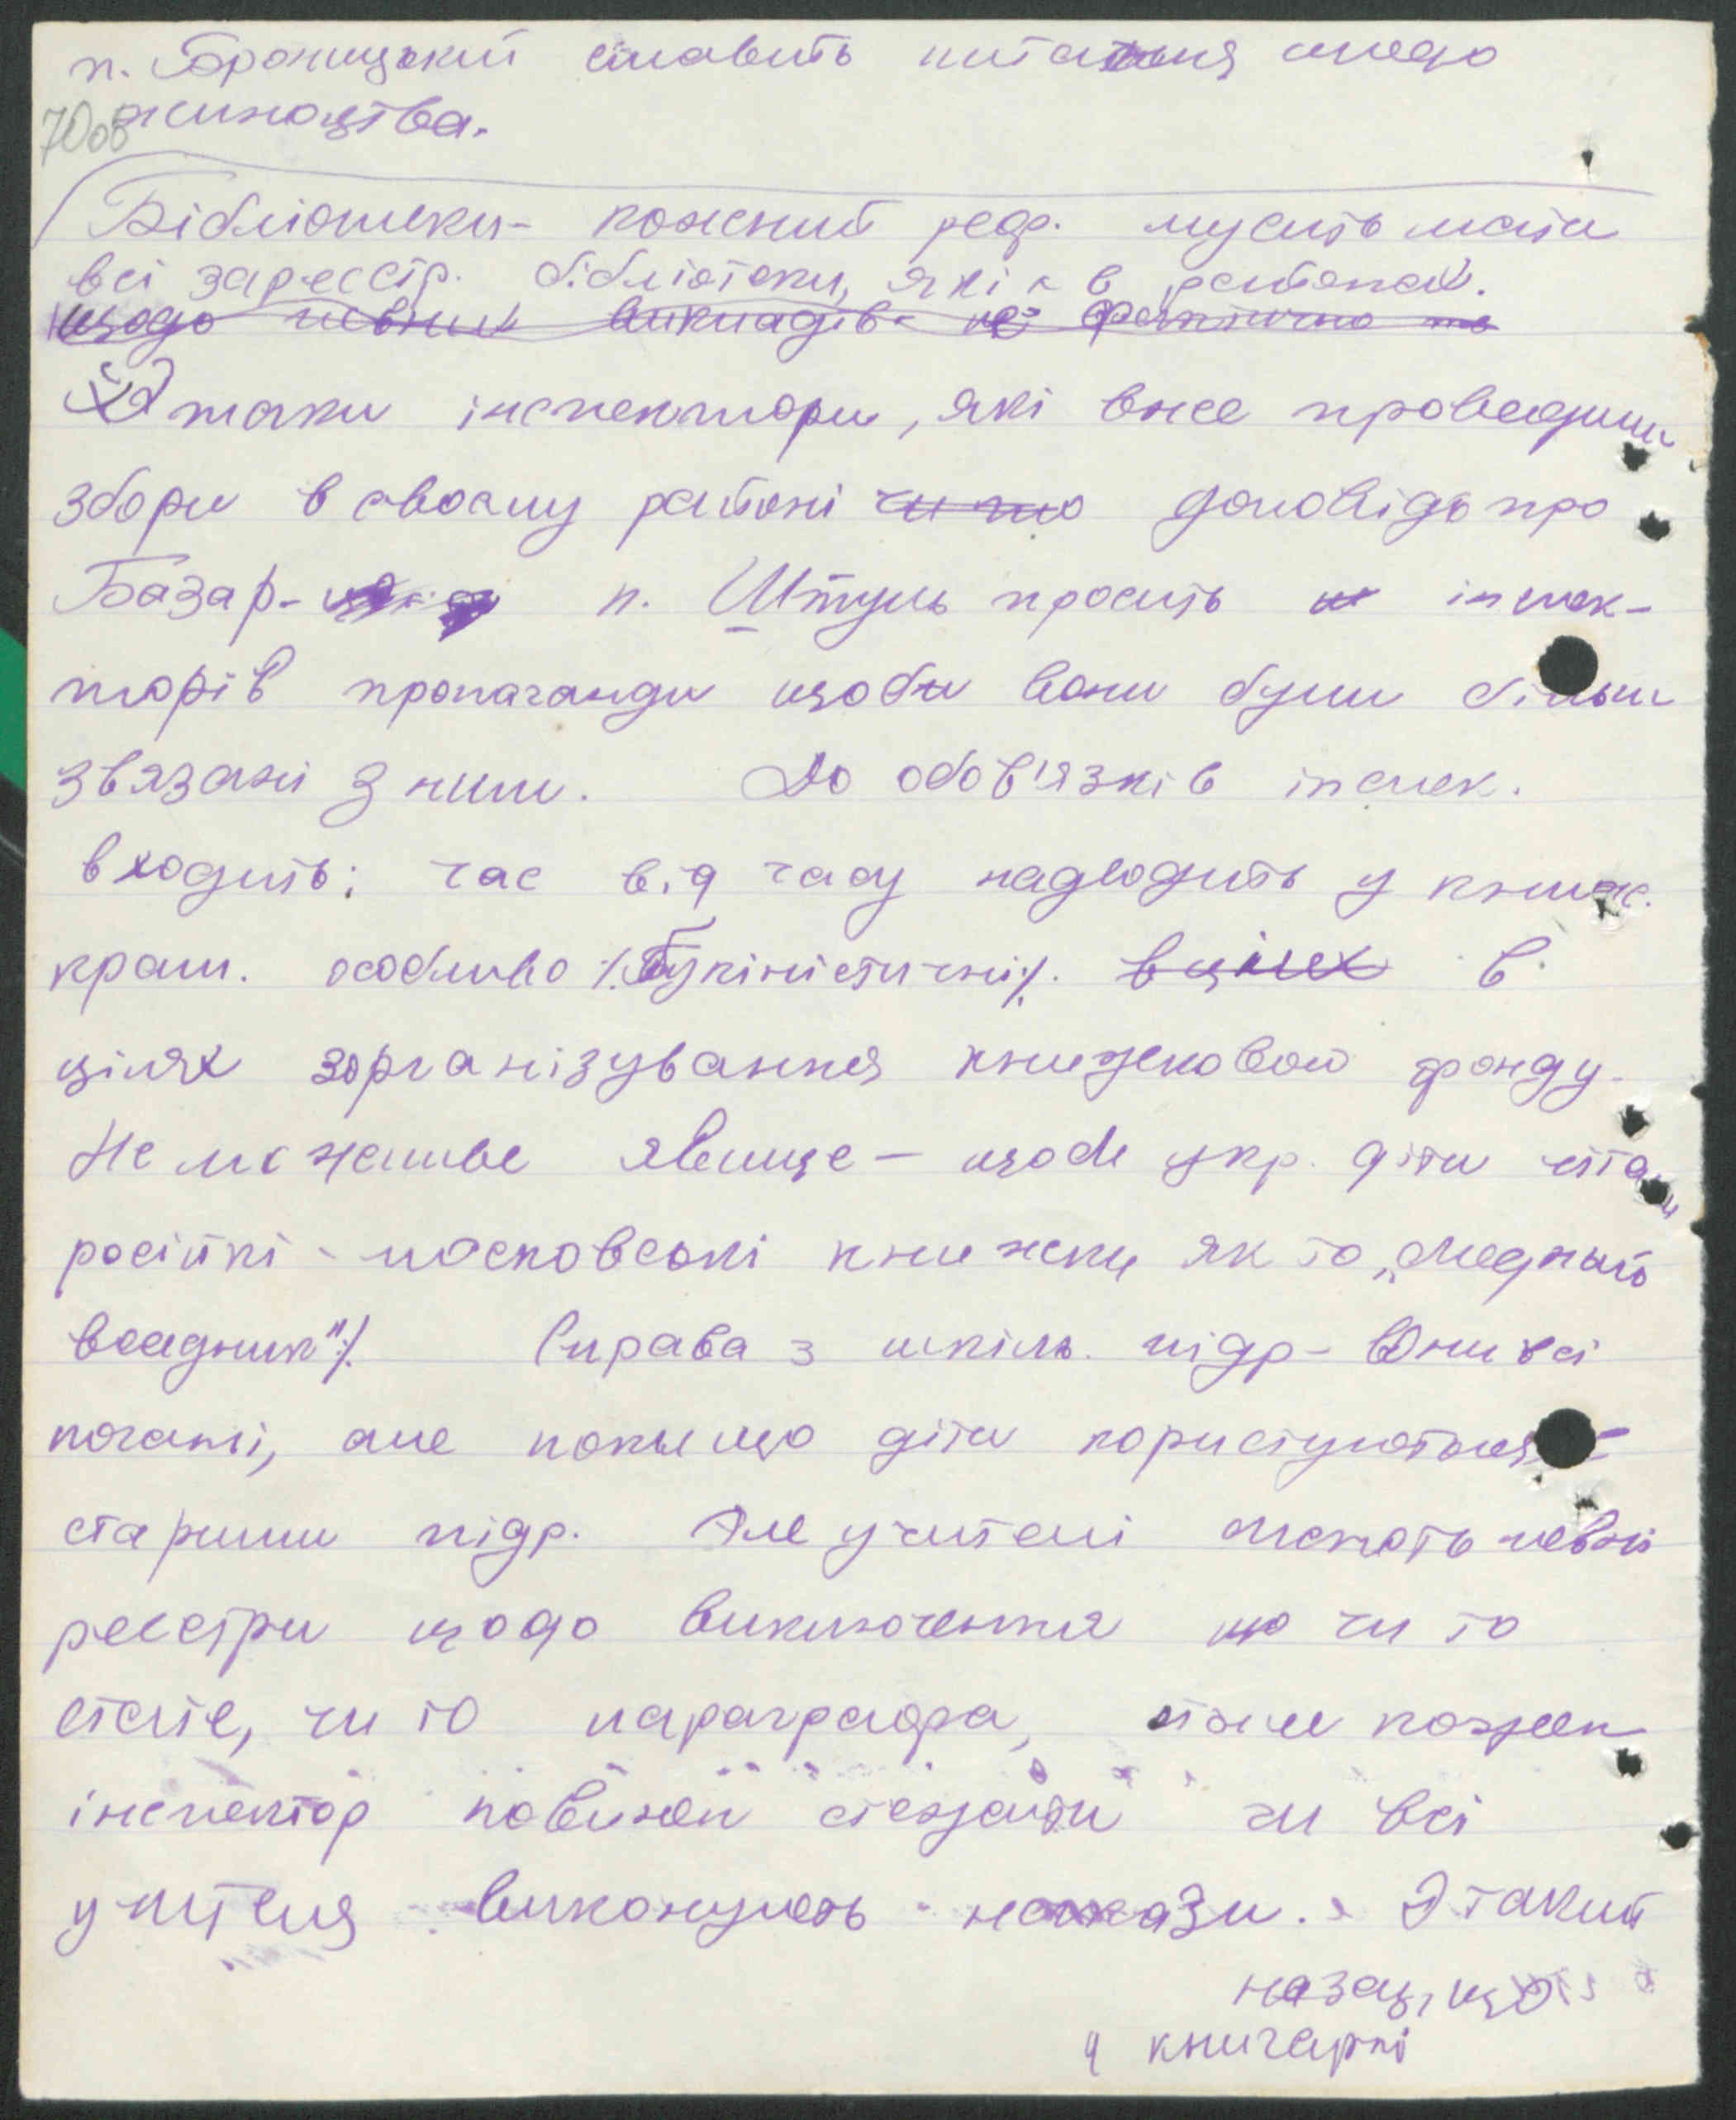 п. Броницький ставить питання щодо
жиноцтва.
70об
Бібліотеки - кожний реф. мусить мати
всі зареєстр. бібліотеки, які є в районах.
щодо певних викладів не фактично
Є таки інспектори, які вже проведили
збори в своєму районі чи то доповідь про
Базар - п. Штуль просить інспек-
торів пропаганди щоби вони були більш
звязані з ним. До обов'язків інспек.
входить: час від часу надходить у книж.
крам. особливо /:букіністичні:/. в цілях в
цілях зорганізування книжковой фонду.
Не можливе явище - щоби укр. діти читали
російкі - московські книжки як то „Медный
всадник":/. Справа з шкіль. підр - Вони всі
погані, але покищо діти користуються є
старими підр. Але учителі мають певні
реєстри щодо виключення що чи то
статє, чи то параграфа, отже кожен
інспектор повинен стежити чи всі
учителя виконують накази. Є такий
наказ, що
у книгарні